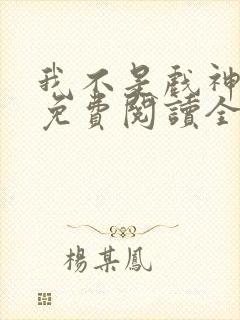 我不是戲神
免費閱讀全
楊某鳳